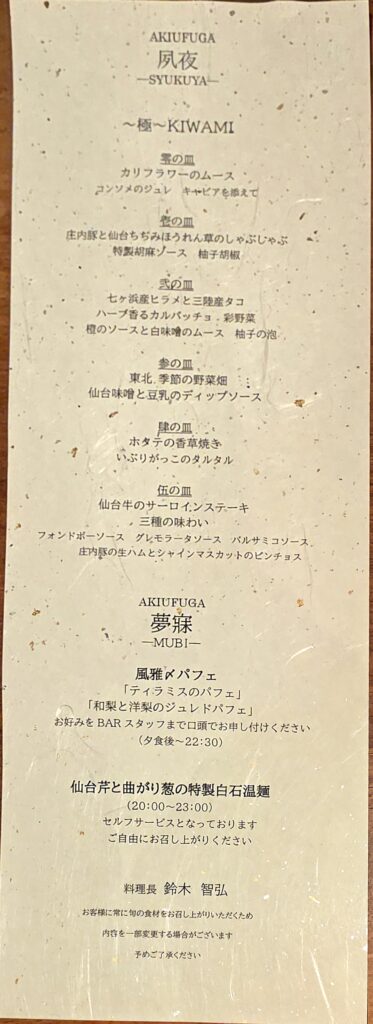 AKIUFUGA
夙夜
―SYUKUYA―
～極～KIWAMI
零の皿
カリフラワーのムース
コンソメのジュレ　キャビアを添えて
壱の皿
庄内豚と仙台ちぢみほうれん草のしゃぶしゃぶ
特製胡麻ソース　柚子胡椒
弐の皿
七ヶ浜産ヒラメと三陸産タコ
ハーブ香るカルパッチョ　彩野菜
橙のソースと白味噌のムース　柚子の泡
参の皿
東北 季節の野菜畑
仙台味噌と豆乳のディップソース
肆の皿
ホタテの香草焼き
いぶりがっこのタルタル
伍の皿
仙台牛のサーロインステーキ
三種の味わい
フォンドボーソース　グレモラータソース　バルサミコソース
庄内豚の生ハムとシャインマスカットのピンチョス
AKIUFUGA
夢寐
―MUBI―
風雅〆パフェ
「ティラミスのパフェ」
「和梨と洋梨のジュレドパフェ」
お好みを BAR スタッフまで口頭でお申し付けください
（夕食後～22:30）
仙台芹と曲がり葱の特製白石温麺
（20:00～23:00）
セルフサービスとなっております
ご自由にお召し上がりください
料理長　鈴木　智弘
お客様に常に旬の食材をお召し上がりいただくため
内容を一部変更する場合がございます
予めご了承ください